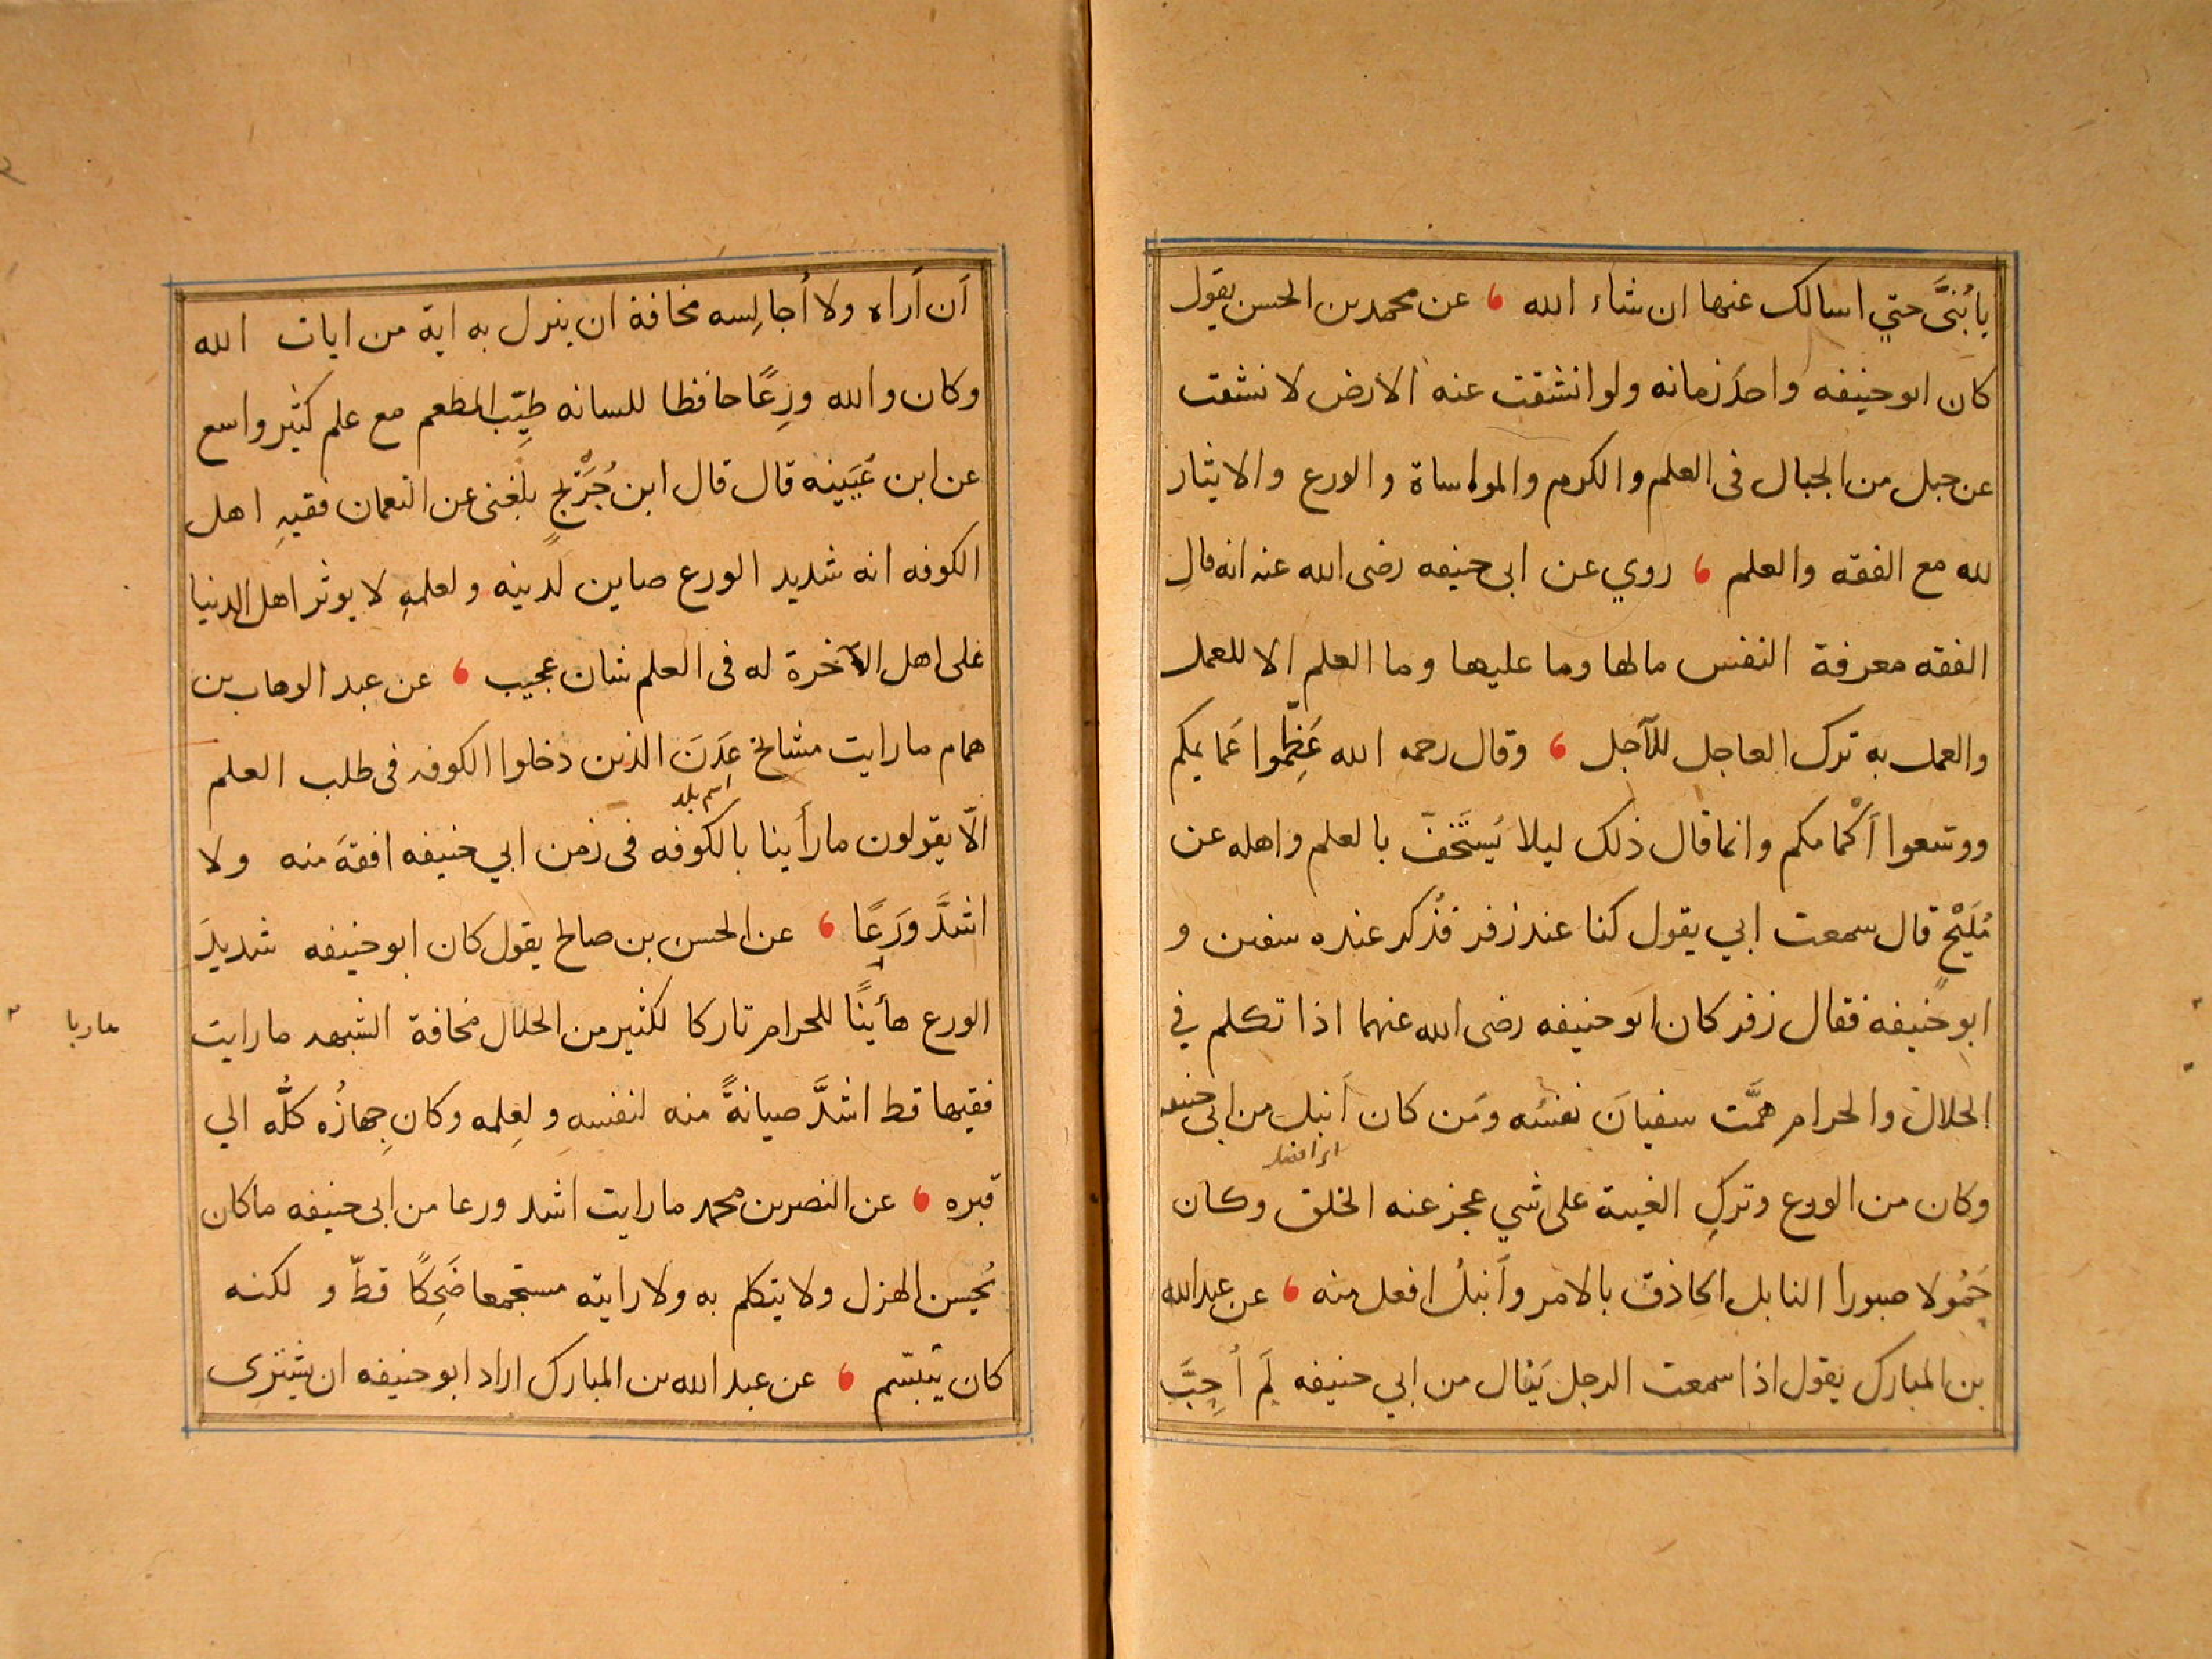 يا بُنيَّ حتي اسالك عنها ان شاء الله ، عن محمد بن الحسن يقول
كان ابو حنيفه واحدَ زمانه ولو انشقت عنه الارض لانشقت
عن جبل من الجبال فى العلم والكرم والمواساة والورع والايثار
لله مع الفقه والعلم ، روي عن ابى حنيفه رضى الله عنه انه قال
الفقه معرفة النفس مالها وما عليها وما العلم الا للعمل
والعمل به ترك العاجل للآجل ، وقال رحمه الله عَظِّموا عَمايمكم
ووسّعوا أكْمامكم وانما قال ذلك ليلا يُستَخفّ بالعلم واهله عن
مُلَيْحٍ قال سمعت ابي يقول كنا عند زفر فذُكر عنده سفين و
ابو حنيفه فقال زفر كان ابو حنيفه رضى الله عنهما اذا تكلم في
الحلال والحرام همَّت سفيانَ نفسُه ومَن كان أنبل من ابى حنيفه
اى افضل
وكان من الورع وتركِ الغيبة على شي عجز عنه الخلق وكان
حَمُولا صبورا النابل الحاذق بالامر وأنبلُ افعل منه ، عن عبد الله
بن المبارك يقول اذا سمعت الرجل يَنال من ابي حنيفه لَم أُحِبَّ
أن أراه ولا أُجالِسه مخافة ان ينزل به اية من ايات الله
وكان والله ورِعًا حافظا للسانه طيِّب المطعم مع علم كثير واسع
عن ابن عُيَينه قال قال ابن جُرَيْجٍ بلغنى عن النعمان فقيهِ اهل
الكوفه انه شديد الورع صاين لدينه ولعلمهِ لا يوثر اهل الدنيا
على اهل الآخرة له فى العلم شان عجيب ، عن عبد الوهاب بن
همام ما رايت مشائخ عِدَنَ الذين دخلوا الكوفه فى طلب العلم
اسم بلد
الّا يقولون ما رأينا بالكوفه فى زمن ابي حنيفه افقهَ منه ولا
اشدَّ وَرَعًا ، عن الحسن بن صالح يقول كان ابو حنيفه شديدَ
الورع هأيبًا للحرام تاركا لكثير من الحلال مخافة الشبهه ما رايت
هاربا
فقيها قط اشدَّ صيانةً منه لنفسه ولِعِلمه وكان جِهازُه كلُّه الي
قبره ، عن النصر بن محمد ما رايت اشد ورعا من ابى حنيفه ما كان
يُحسِن الهزل ولا يتكلم به ولا رايته مستجمعا ضَحِكًا قطّ و لكنه
كان يتبسّم ، عن عبد الله بن المبارك اراد ابو حنيفه ان يشترى